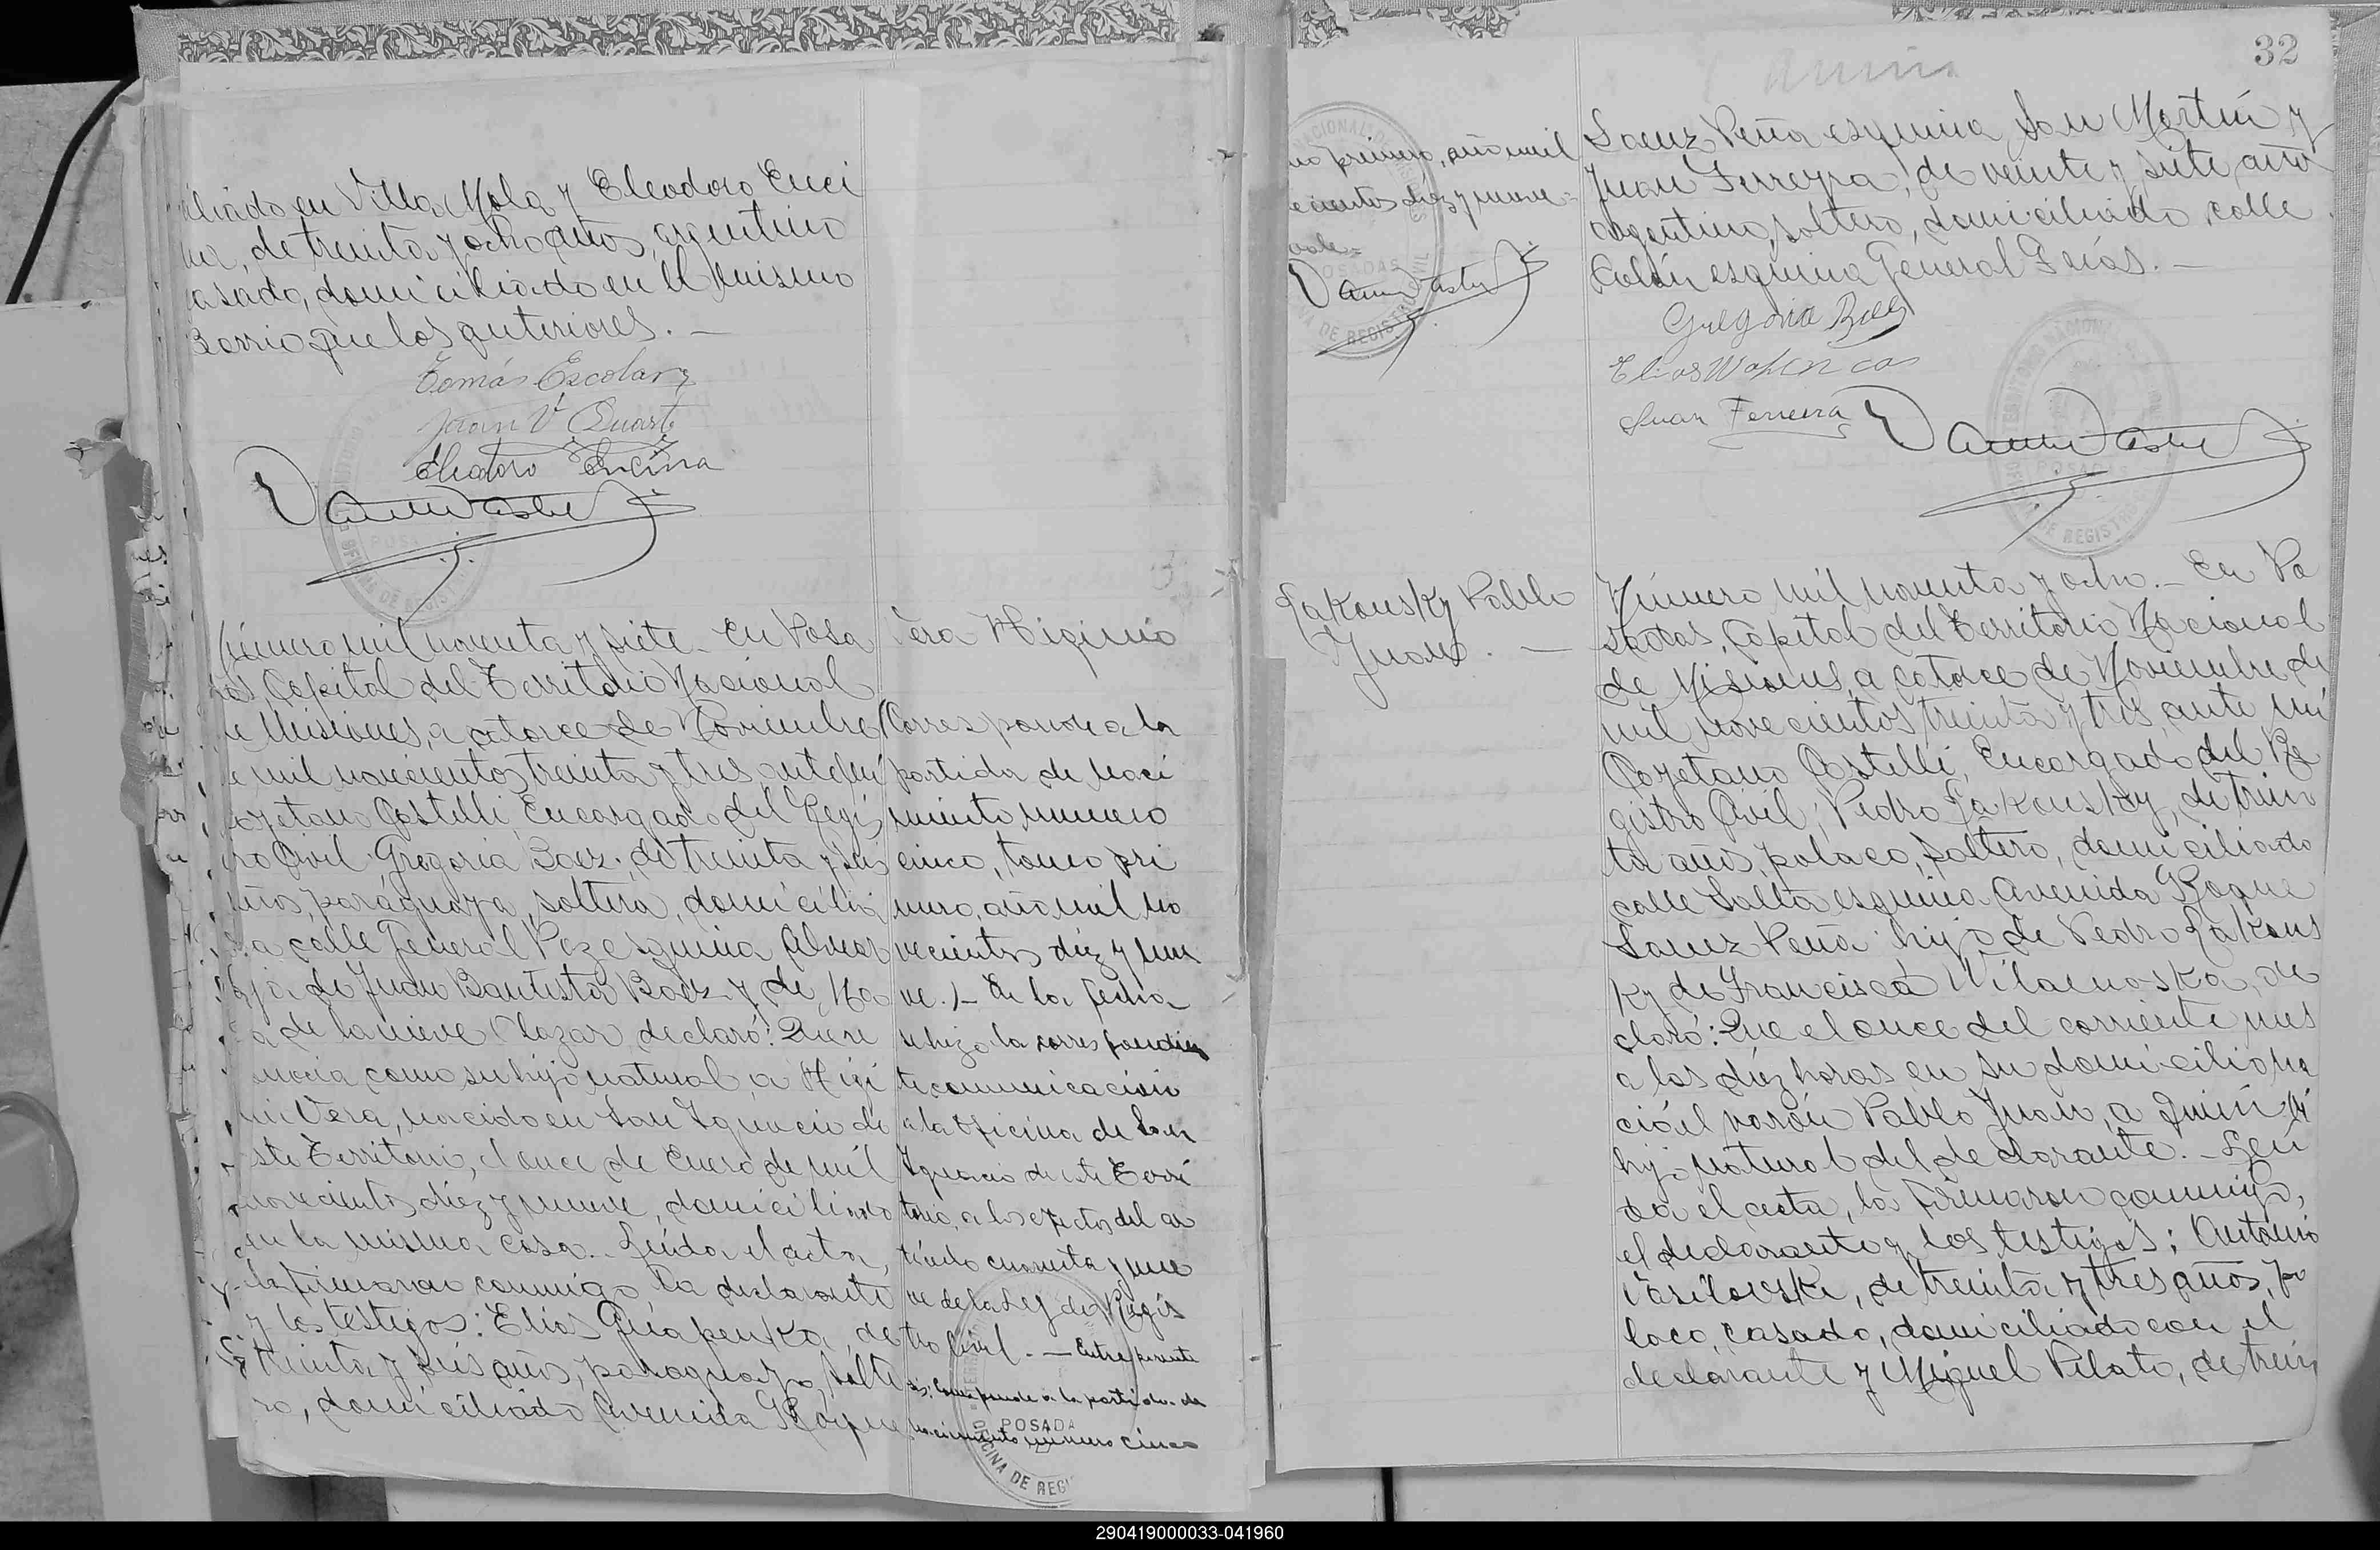 ciliado en Villa Mola y Eleodoro Enci
na, de treinta y ocho años, argentino
casado, domiciliado en el mismo
Barrio que los anteriores. —
Tomás Escolar
Juan V Duarte
Eleodoro Encina
POSADAS
OFICINA DE REGISTRO
Número mil noventa y siete — En Posa
das Capital del Territorio Nacional
de Misiones, a catorce de Noviembre
de mil novecientos treinta y tres, ante mí
Cayetano Castelli, Encargado del Regis
tro Civil Gregoria Baez, de treinta y seis
años, paraguaya, soltera, domicilia
da calle General Paz esquina Alvear
hija de Juan Bautista Baez y de Ro
sa de la nieve Olazar, declaró: Que re
conocía como su hijo natural, a Higi
nio Vera, nacido en San Ignacio de
este Territorio, el once de Enero de mil
novecientos diez y nueve, domiciliado
en la misma casa. Leída el acta,
la firmaron conmigo la declarante
y los testigos: Elías
treinta y seis años, paraguayo, solte
ro, domiciliado Avenida Roque
Vera Higinio
(Corresponde a la
partida de naci
miento número
cinco, tomo pri
mero, año mil no
vecientos diez y nue
ve.)— En la fecha
se hizo la correspondien
te comunicación
a la Oficina de San
Ignacio de este Terri
torio, a los efectos del ar
tículo cuarenta y nue
ve de la Ley de Regis
tro Civil. — Entre parente
sis: Corresponde a la partida de
nacimiento número cinco
POSADA
OFICINA DE REGI
32
mo primero, año mil
vecientos diez y nueve =
vale =
Saenz Peña esquina San Martín y
Juan Ferreyra, de veinte y siete años
argentino, soltero, domiciliado calle
Colón esquina General Frías. —
Gregoria Baez
Elias
Juan Ferreira
POSADAS
Zakousky Pablo
Juan. —
Número mil noventa y ocho. — En Po
sadas, Capital del Territorio Nacional
de Misiones, a catorce de Noviembre de
mil novecientos treinta y tres, ante mí
Cayetano Castelli, Encargado del Re
gistro Civil; Pedro Zakousky, de trein
ta años, polaco, soltero, domiciliado
calle Salta esquina Avenida Roque
Saenz Peña hijo de Pedro Zakous
ky de Francisca Wilaenoska, de
claró: Que el once del corriente mes
a las diez horas en su domicilio na
ció el varón Pablo Juan, a quien
hijo natural del declarante. — Leí
da el acta, la firmaron conmigo,
el declarante y los testigos: Antonio
Vasileuski, de treinta y tres años, po
laco, casado, domiciliado con el
declarante y Miguel Pilato, de trein
290419000033-041960